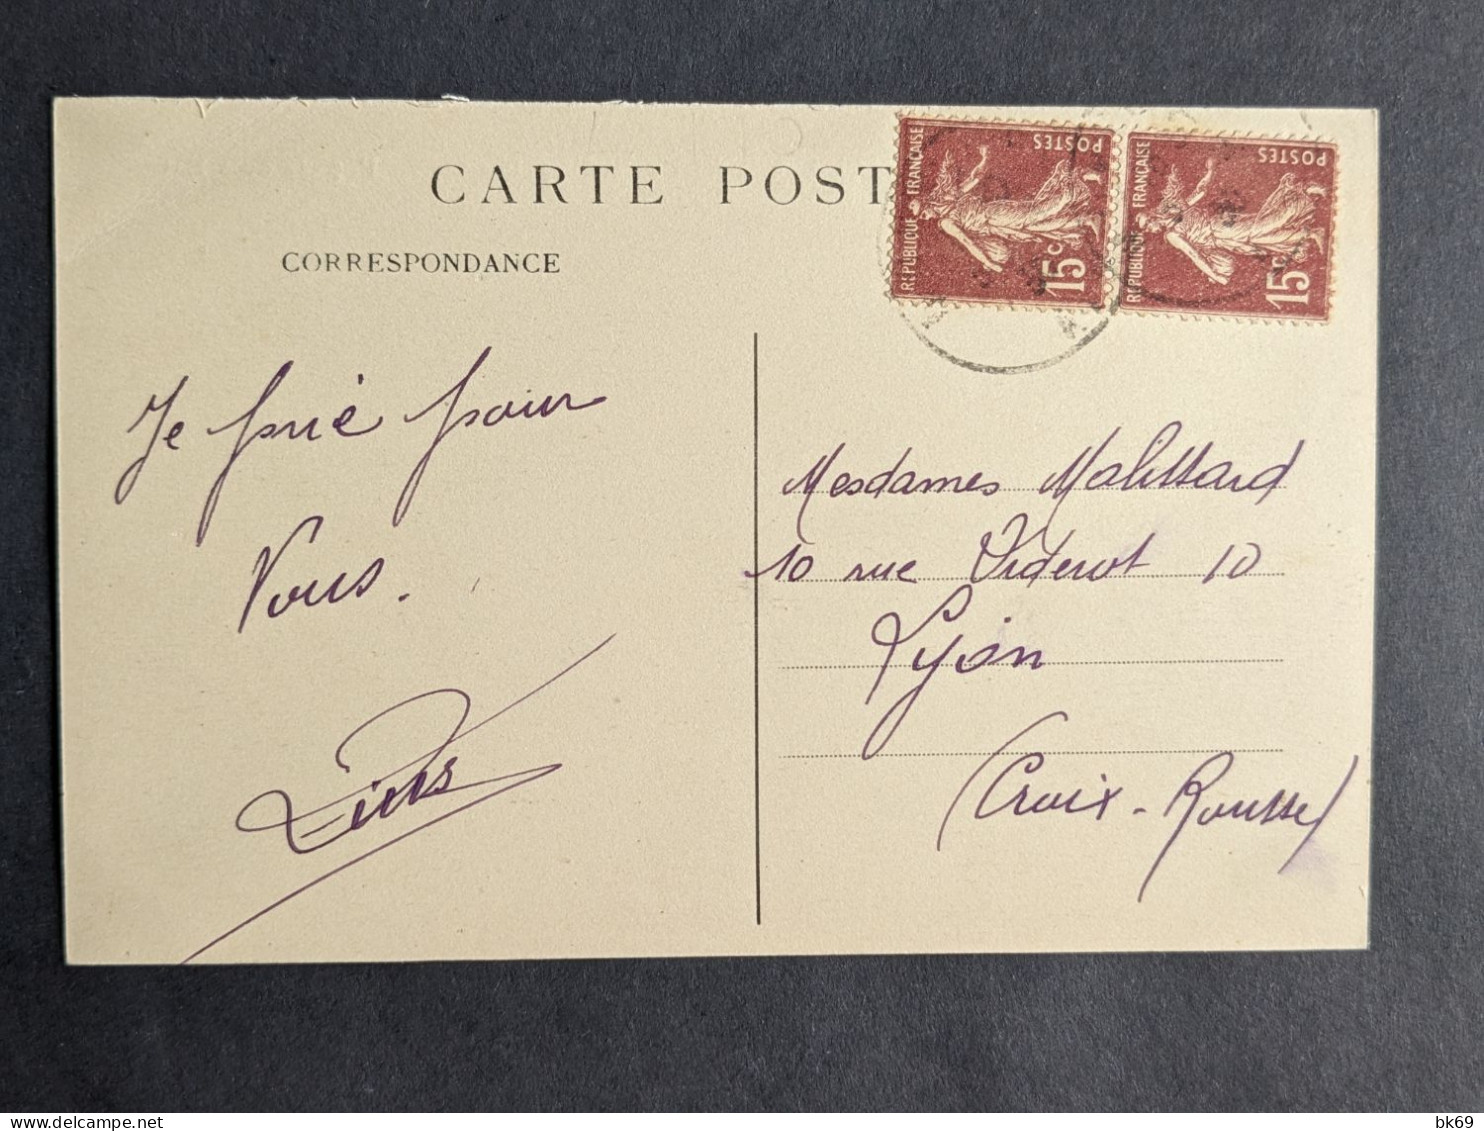 CARTE POST
CORRESPONDANCE
REPUBLIQUE FRANÇAISE
POSTES
15c
REPUBLIQUE FRANÇAISE
POSTES
15c
Je prié pour
Vous.
Mesdames Malissard
10 rue Diderot 10
Lyon
(Croix-Rousse)
delcampe.net
bk69